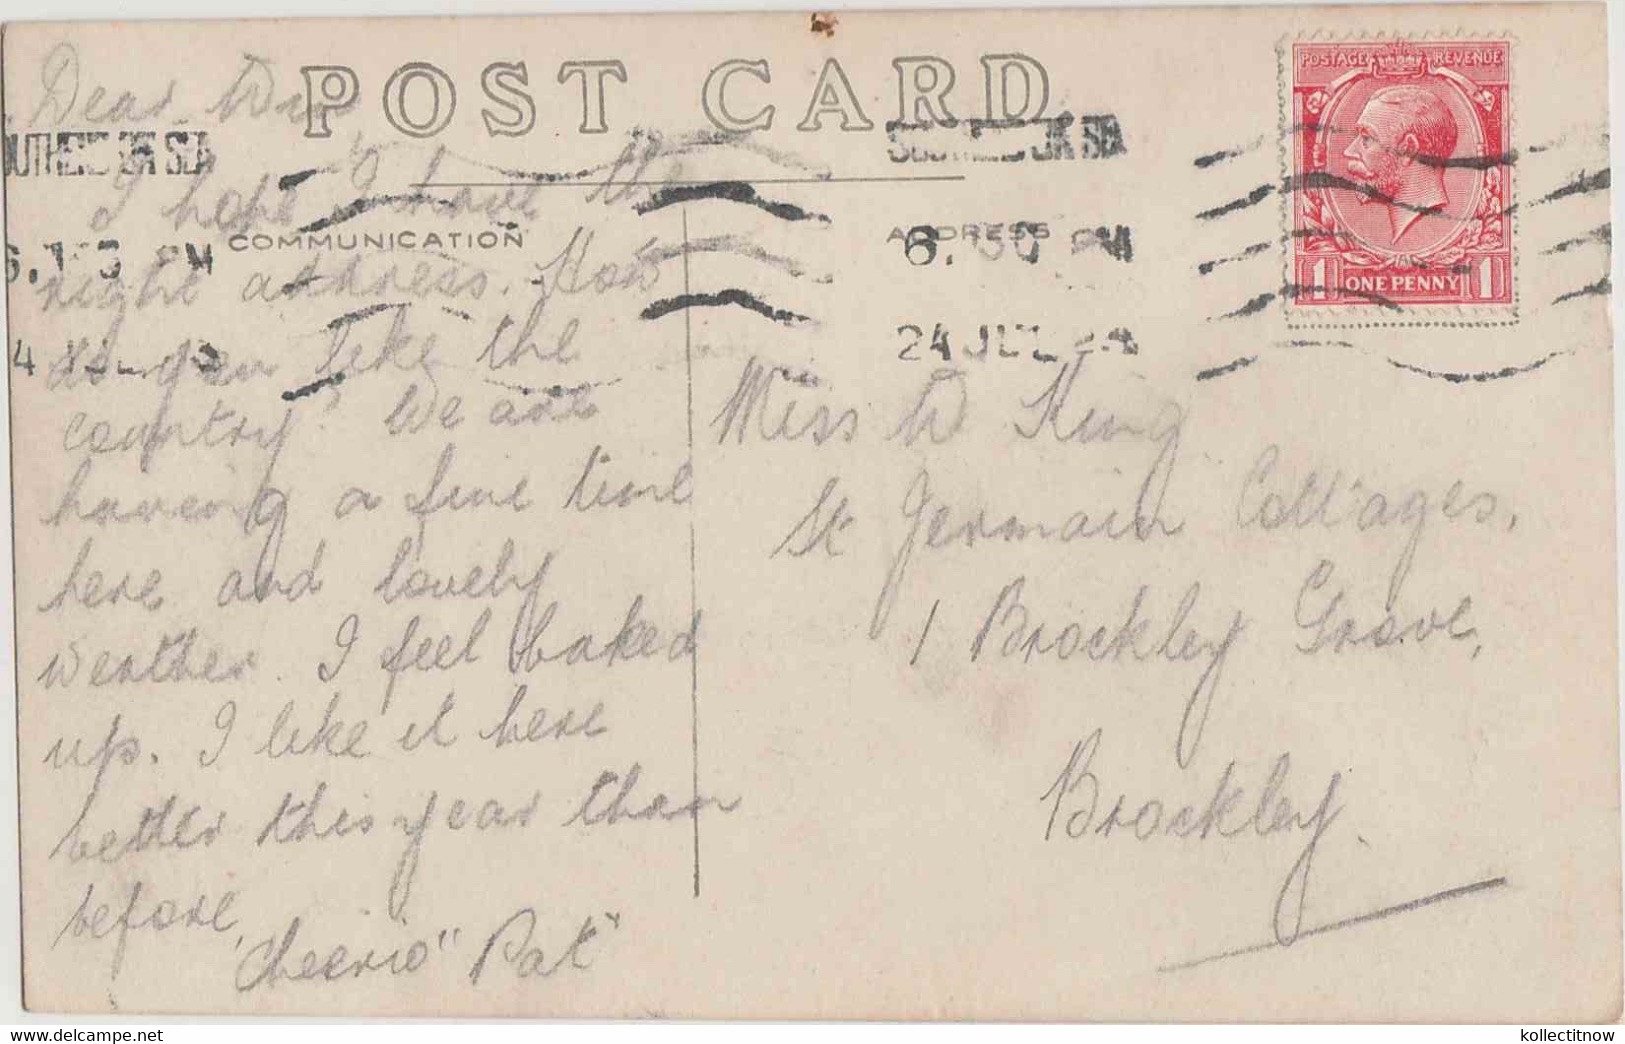 POST CARD
COMMUNICATION
ADDRESS
Dear Win
I hope I have the
right address. How
do you like the
country? We are
having a fine time
here and lovely
weather. I feel baked
up. I like it here
better this year than
before,
"Cheerio" Pat"
Miss W King
St Germain Cottages,
1 Brockley Grove,
Brockley.
SOUTHEND ON SEA
6. PM
24 JUL
POSTAGE REVENUE
1 ONE PENNY 1
kollectitnow